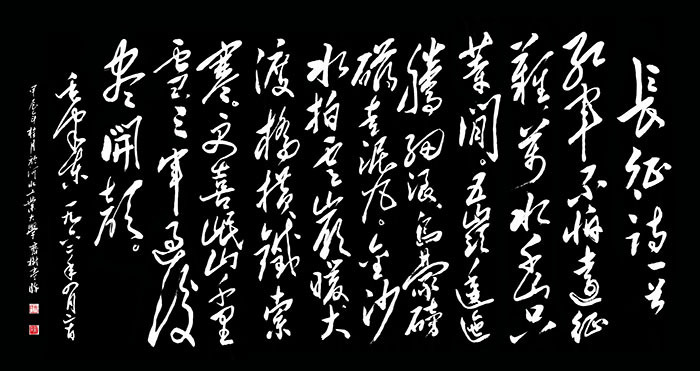 長征詩一首
紅軍不怕遠征
難萬水千山只
等閒。五嶺逶迤
騰細浪烏蒙磅
礴走泥丸。金沙
水拍雲崖暖大
渡橋橫鐵索
寒。更喜岷山千里
雪三軍過後
盡開顏。
毛澤東 一九六二年四月廿日
甲辰年桂月於河北工業大學